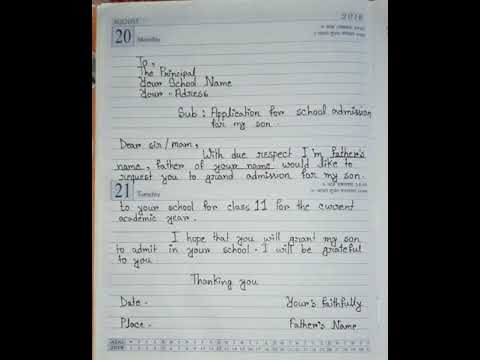 AUGUST
2018
20
Monday
To,
The Principal
Your School Name
Your . Adress
Sub : Application for school admission
for my son.
Dear sir/mam,
With due respect I'm Father's
name, Father of your name would like to
request you to grand admission for my son.
21
Tuesday
to your school for class 11 for the current
academic year.
I hope that you will grant my son
to admit in your school. I will be grateful
to you
Thanking you
Date.
Your's Faithfully
Place.
Father's Name
2018